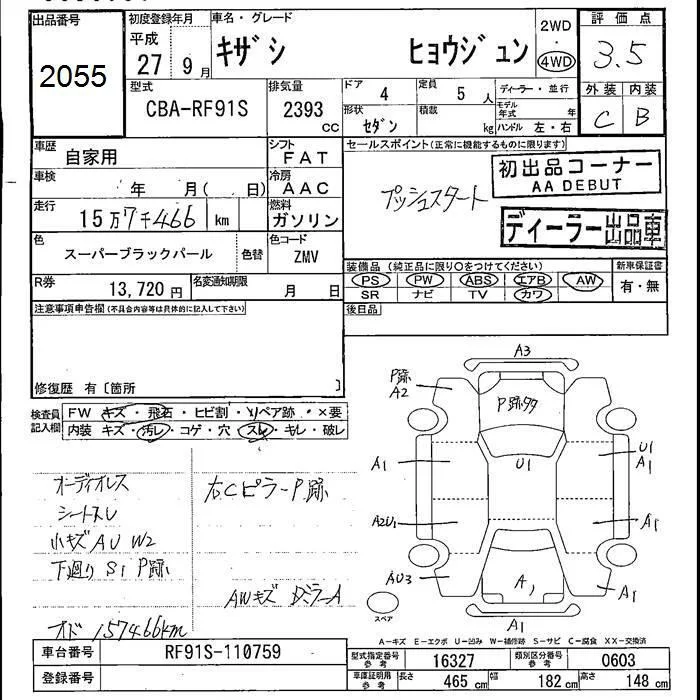 出品番号 初度登録年月 車名・グレード 2WD 評価点
2055 平成 27 9月 キザシ ヒョウジュン ・ 4WD 3.5
型式 排気量 ドア 4 定員 5人 ディーラー・並行 外装 内装
CBA-RF91S 2393 cc 形状 セダン 積載 kg モデル年式 年 ハンドル 左・右 C B
車歴 自家用 シフト FAT セールスポイント(正常に機能するものに限ります)
車検 年 月( 日) 冷房 AAC プッシュスタート 初出品コーナー
AA DEBUT
走行 15万7千466 km 燃料 ガソリン ディーラー出品車
色 スーパーブラックパール 色替 色コード ZMV
装備品(純正品に限り〇をつけてください) 新車保証書
R券 13,720円 名変通知期限 月 日 PS PW ABS エアB AW 有・無
SR ナビ TV カワ
注意事項申告欄(不具合内容等は具体的に記入して下さい) 後日品
修復歴 有〔箇所 〕
A3
P跡 A2 P跡99
検査員 FW キズ・飛石・ヒビ割・リペア跡・×要
記入欄 内装 キズ・汚レ・コゲ・穴・スレ・キレ・破レ
A1 U1 U1 A1
オーディオレス 右Cピラー P跡
シートスレ
小キズ AU W2 A2U1 A1
下廻り S1 P跡
AWキズ ドミラーA AU3 A1 A1
スペア A1
オド 157466km
A-キズ E-エクボ U-凹み W-補修跡 S-サビ C-腐食 XX-交換済
車台番号 RF91S-110759 型式指定番号 参考 16327 類別区分番号 参考 0603
登録番号 車庫証明用 参考 長さ 465cm 幅 182cm 高さ 148cm